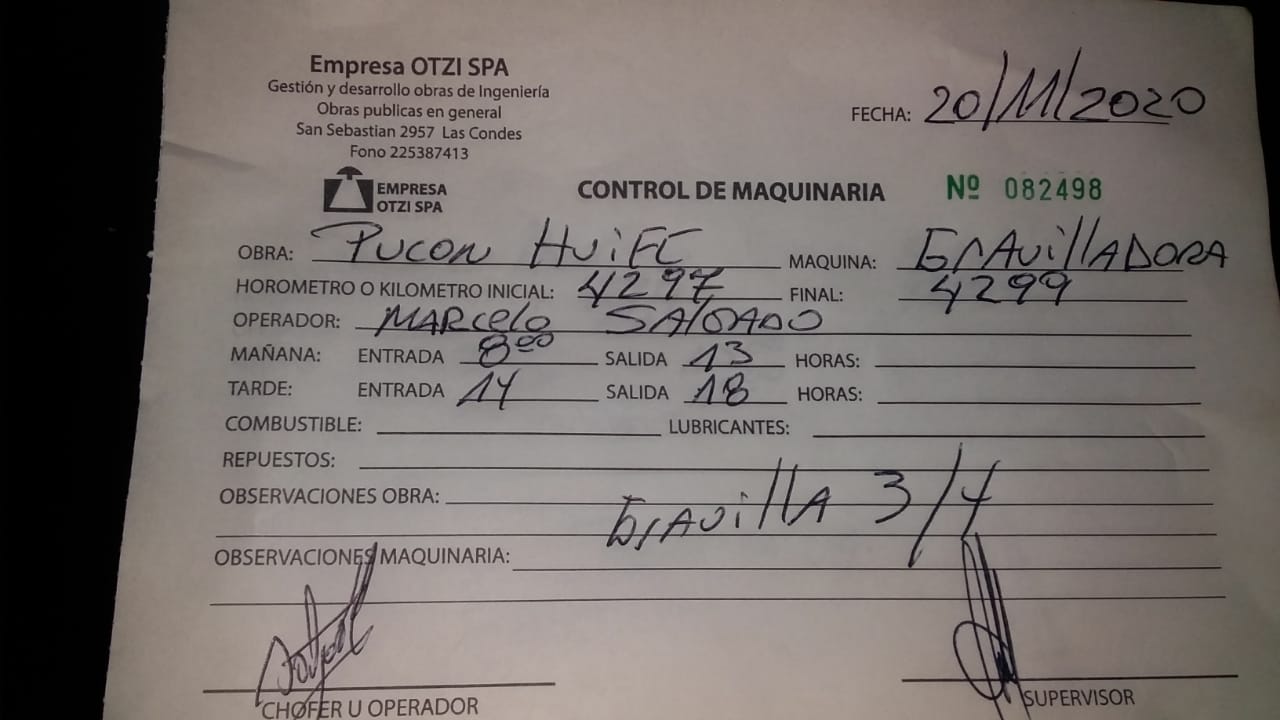 Empresa OTZI SPA
Gestión y desarrollo obras de Ingeniería
Obras publicas en general
San Sebastian 2957 Las Condes
Fono 225387413
FECHA: 20/11/2020
EMPRESA
OTZI SPA
CONTROL DE MAQUINARIA Nº 082498
OBRA: Pucon HuiFE MAQUINA: GrAvillADORA
HOROMETRO O KILOMETRO INICIAL: 4297 FINAL: 4299
OPERADOR: MARcelo SAlGADO
MAÑANA: ENTRADA 8⁰⁰ SALIDA 13 HORAS:
TARDE: ENTRADA 14 SALIDA 18 HORAS:
COMBUSTIBLE: LUBRICANTES:
REPUESTOS:
OBSERVACIONES OBRA:
GrAvillA 3/4
OBSERVACIONES MAQUINARIA:
CHOFER U OPERADOR SUPERVISOR